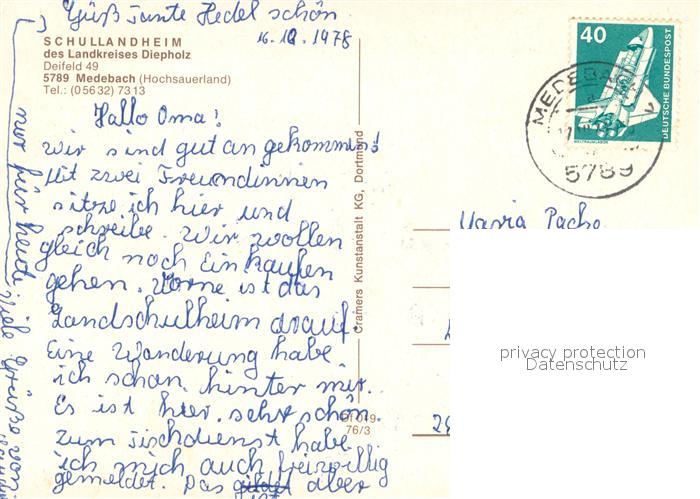 Grüß Tante Hedel schön
16.10.1978
SCHULLANDHEIM
des Landkreises Diepholz
Deifeld 49
5789 Medebach (Hochsauerland)
Tel.: (05632) 7313
Hallo Oma!
Wir sind gut angekommen!
Mit zwei Freundinnen
sitze ich hier und
schreibe. Wir wollen
gleich noch Einkaufen
gehen. Vorne ist das
Landschulheim drauf.
Eine Wanderung habe
ich schon hinter mir.
Es ist hier sehr schön.
Zum Tischdienst habe
ich mich auch freiwillig
gemeldet. Das gildet aber
ist
nur für heute. Viele Grüße von
Cramers Kunstanstalt KG, Dortmund
019
76/3
40
DEUTSCHE BUNDESPOST
WELTRAUMLABOR
MEDEBACH
5789
Maria
privacy protection
Datenschutz